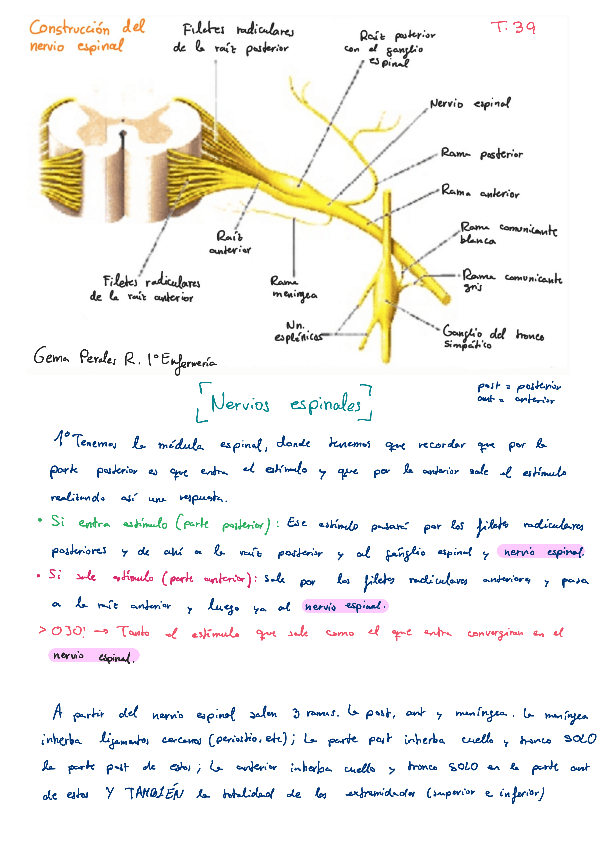 Construcción del
nervio espinal
Filetes radiculares
de la raíz posterior
Raíz posterior
con el ganglio
espinal
T.39
Nervio espinal
Rama posterior
Rama anterior
Rama comunicante
blanca
Rama comunicante
gris
Ganglio del tronco
simpático
Raíz
anterior
Rama
meníngea
Filetes radiculares
de la raíz anterior
Nn.
esplácnicos
Gema Perales R. 1º Enfermería
[Nervios espinales]
post = posterior
ant = anterior
1º Tenemos la médula espinal, donde tenemos que recordar que por la
parte posterior es que entra el estímulo y que por la anterior sale el estímulo
realizando así una respuesta.
• Si entra estímulo (parte posterior): Ese estímulo pasará por los filetes radiculares
posteriores y de ahí a la raíz posterior y al ganglio espinal y nervio espinal.
• Si sale estímulo (parte anterior): Sale por los filetes radiculares anteriores y pasa
a la raíz anterior y luego ya al nervio espinal.
> OJO! → Tanto el estímulo que sale como el que entra convergiran en el
nervio espinal.
A partir del nervio espinal salen 3 ramas. La post, ant y meníngea. La meníngea
inherba ligamentos cercanos (periostio, etc); La parte post inherba cuello y tronco SOLO
la parte post de estos; La anterior inherba cuello y tronco SOLO en la parte ant
de estos Y TAMBIÉN la totalidad de las extremidades (superior e inferior)